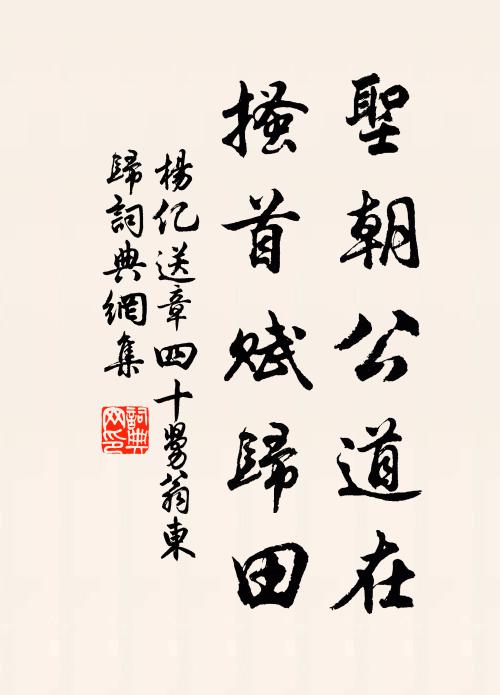 聖朝公道在
搔首賦歸田
楊億送章四十舅翁東
歸詞典網集
詞典
网印